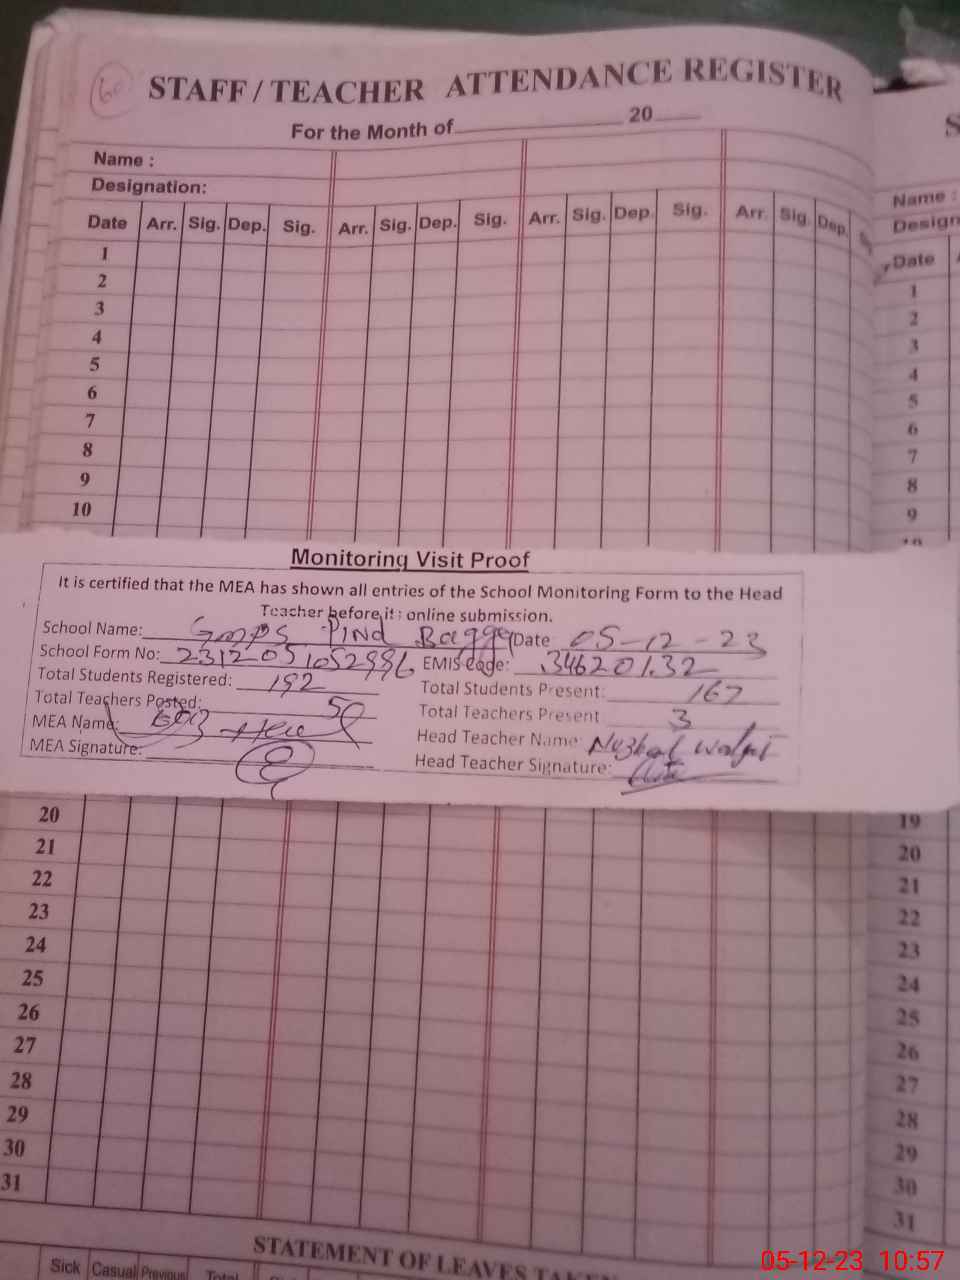 60
STAFF / TEACHER ATTENDANCE REGISTER
For the Month of 20
Name :
Designation:
Date Arr. Sig. Dep. Sig. Arr. Sig. Dep. Sig. Arr. Sig. Dep. Sig. Arr. Sig. Dep.
1
2
3
4
5
6
7
8
9
10
Monitoring Visit Proof
It is certified that the MEA has shown all entries of the School Monitoring Form to the Head
Teacher before its online submission.
School Name: GMPS Pind Bagga Date 05-12-23
School Form No: EMIS Code: 34620132
Total Students Registered: 192 Total Students Present: 167
Total Teachers Posted: Total Teachers Present 3
MEA Name: Head Teacher Name:
MEA Signature: Head Teacher Signature:
20
21
22
23
24
25
26
27
28
29
30
31
STATEMENT OF LEAVES TAKEN
Sick Casual Previous Total
S
Name :
Design
Date
1
2
3
4
5
6
7
8
9
10
19
20
21
22
23
24
25
26
27
28
29
30
31
05-12-23 10:57